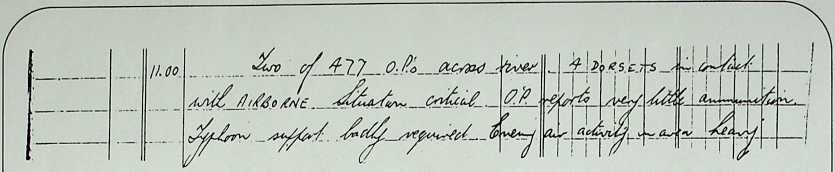 11.00 Two of 477 O.P's across river 4 DORSETS in contact
with AIRBORNE. Situation critical O.P. reports very little ammunition.
Typhoon support badly required Enemy air activity in area heavy